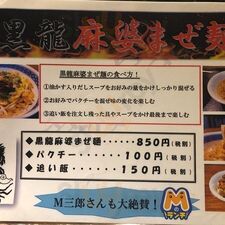 黒龍麻婆まぜ麺
黒龍麻婆まぜ麺の食べ方！
①油かす入りだしスープをお好みの量をかけしっかり混ぜる
②お好みでパクチーを混ぜ味の変化を楽しむ
③追い飯を注文し残った具やスープをかけ最後まで楽しむ
◆黒龍麻婆まぜ麺・・・・・850円（税別）
◆パクチー・・・・・・・・100円（税別）
◆追い飯・・・・・・・・・150円（税別）
M三郎さんも大絶賛！
M